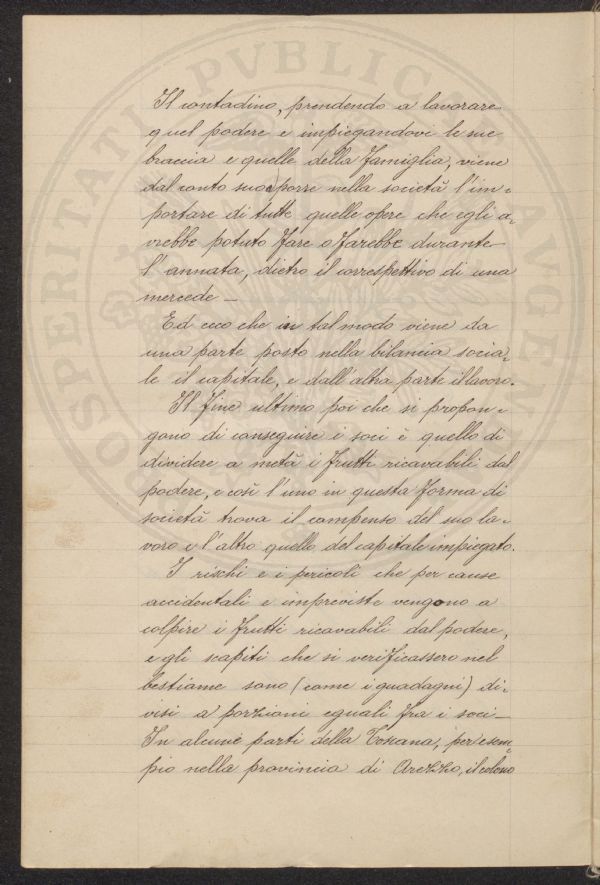 Il contadino, prendendo a lavorare
quel podere e impiegandovi le sue
braccia e quelle della famiglia, viene
dal canto suo a porre nella società l'im-
portare di tutte quelle opere che egli a-
vrebbe potuto fare o farebbe durante
l'annata, dietro il correspettivo di una
mercede –
Ed ecco che in tal modo viene da
una parte posto nella bilancia socia-
le il capitale, e dall'altra parte il lavoro.
Il fine ultimo poi che si propon-
gono di conseguire i soci è quello di
dividere a metà i frutti ricavabili dal
podere, e così l'uno in questa forma di
società trova il compenso del suo la-
voro e l'altro quello del capitale impiegato.
I rischi e i pericoli che per cause
accidentali e impreviste vengono a
colpire i frutti ricavabili dal podere,
e gli scapiti che si verificassero nel
bestiame sono (come i guadagni) di-
visi a porzioni eguali fra i soci –
In alcune parti della Toscana, per esem-
pio nella provincia di Arezzo, il colono
PROSPERITATI PVBLICAE AVGENDAE